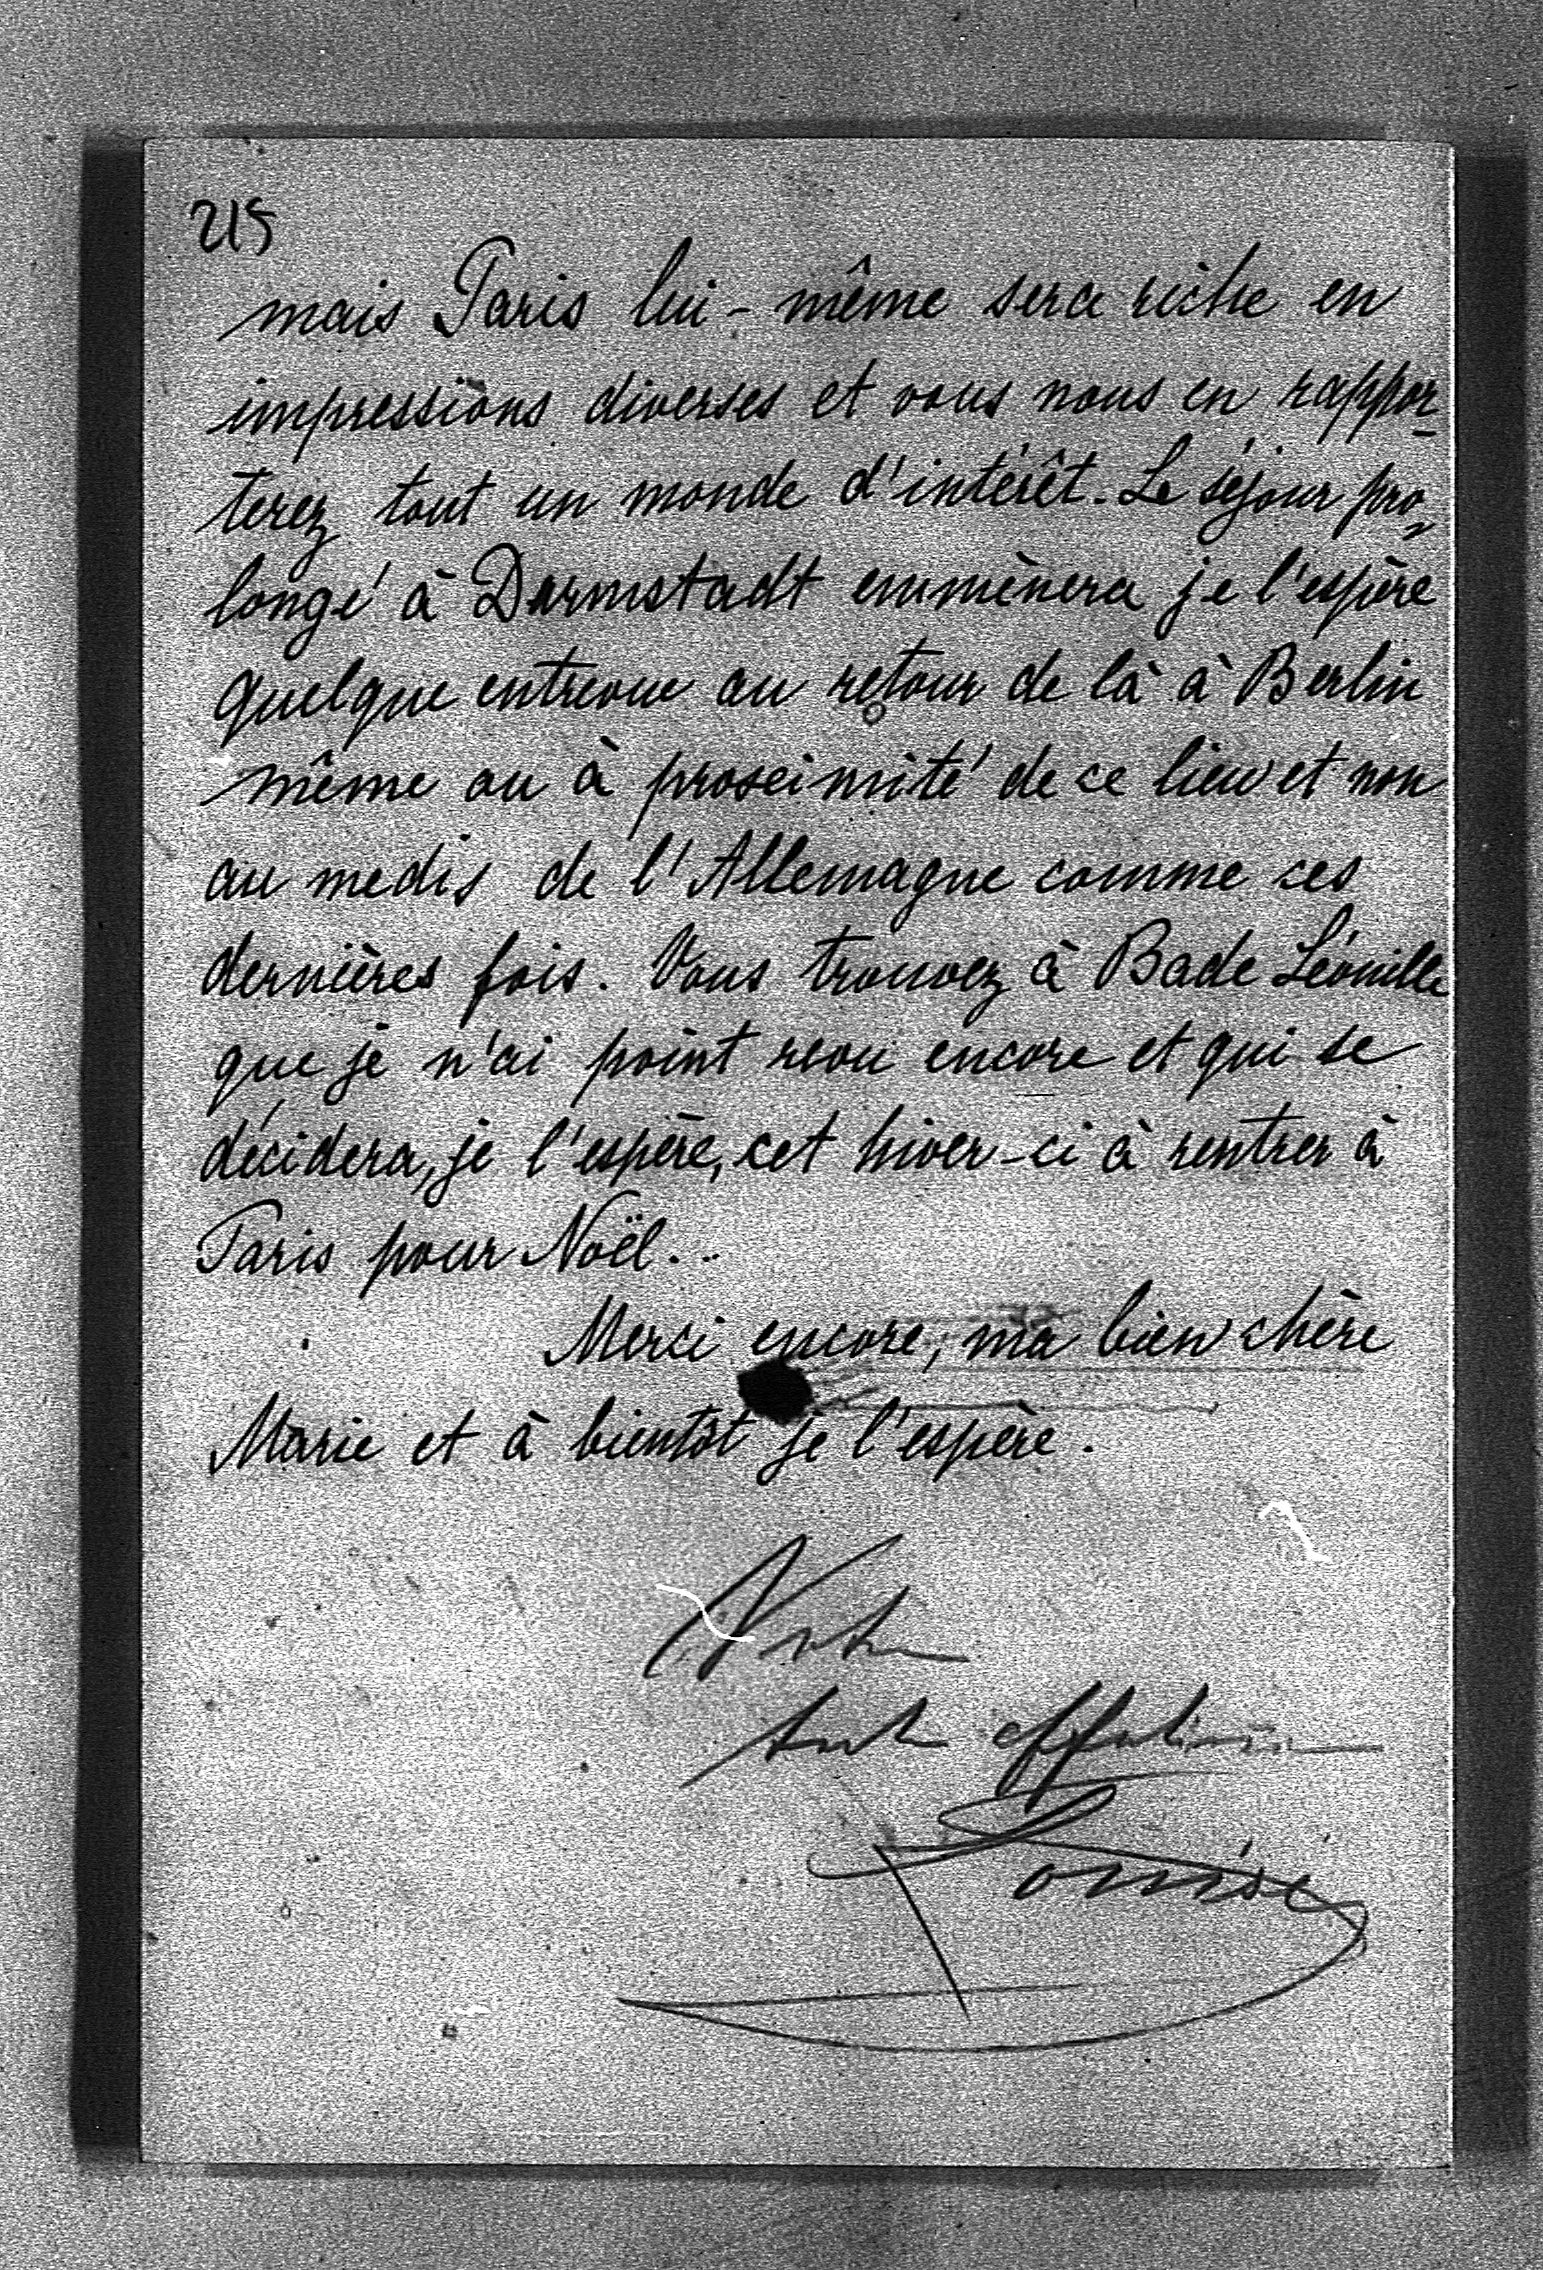 215
mais Paris lui-même sera riche en
impressions diverses et vous nous en rappor-
terez tout un monde d'intérêt. Le séjour pro-
longé à Darmstadt emmènera je l'espère
quelque entrevue au retour de là à Berlin
même ou à proximité de ce lieu et non
au medis de l'Allemagne comme ces
dernières fois. Vous trouvez à Bade Léonille
que je n'ai point revu encore et qui se
décidera, je l'espère, cet hiver-ci à rentrer à
Paris pour Noël...
Merci encore, ma bien chère
Marie et à bientôt je l'espère.
Votre
Louise